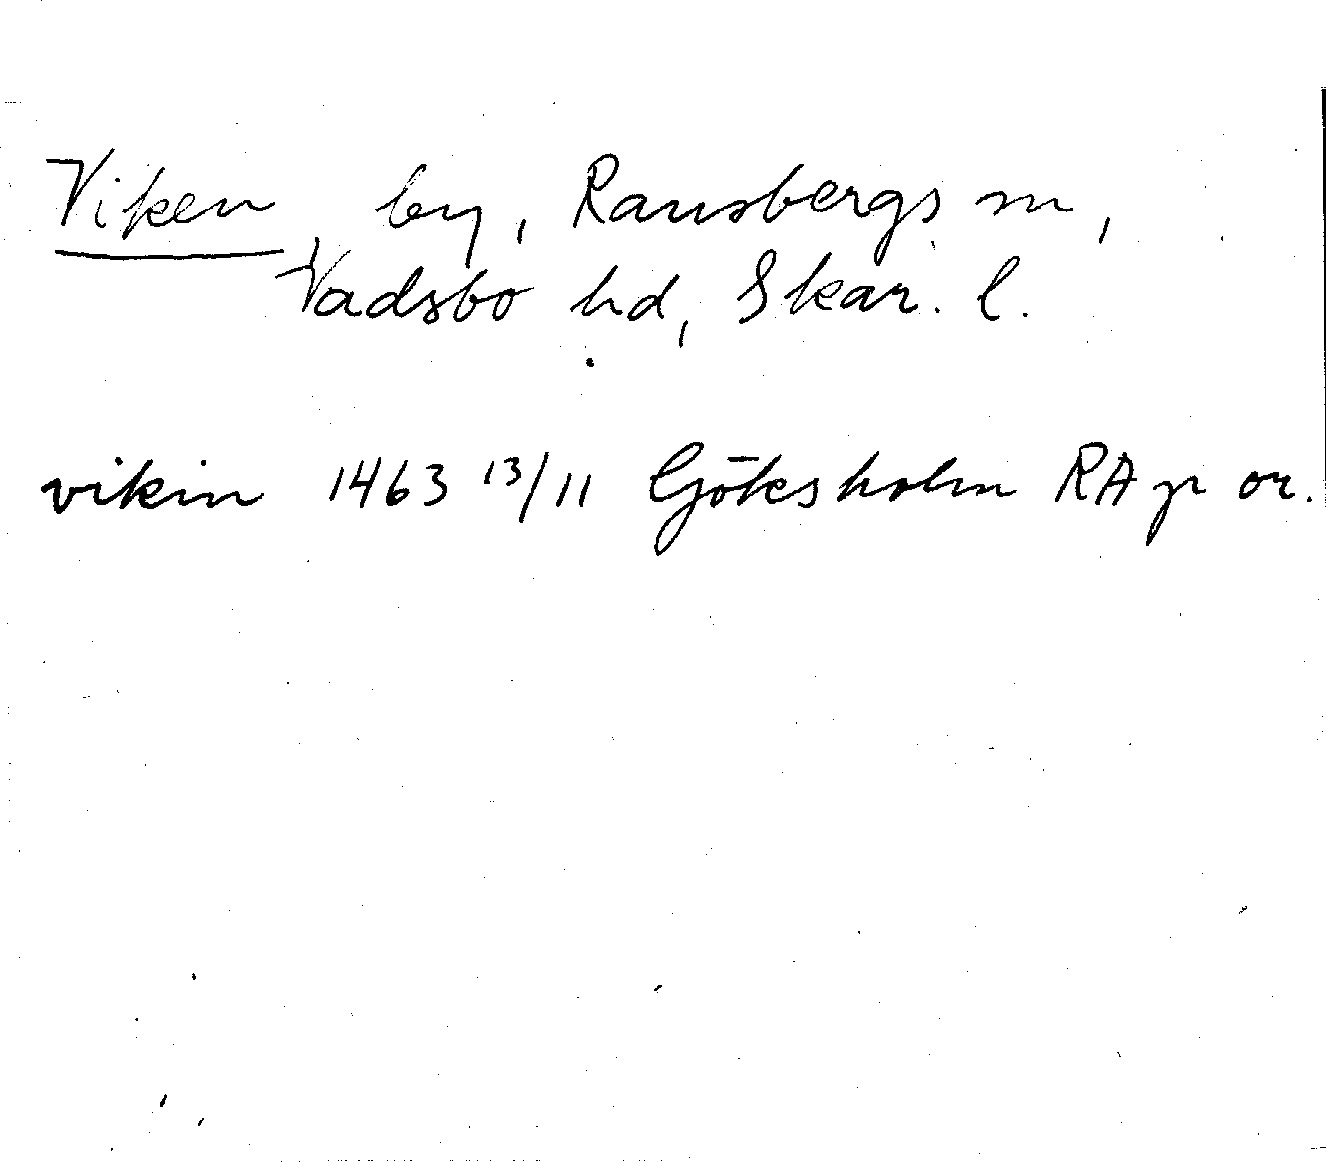 Viken, by, Ransbergs sn,
Vadsbo hd, Skar. l.
vikin 1463 13/11 Göksholm RAp or.